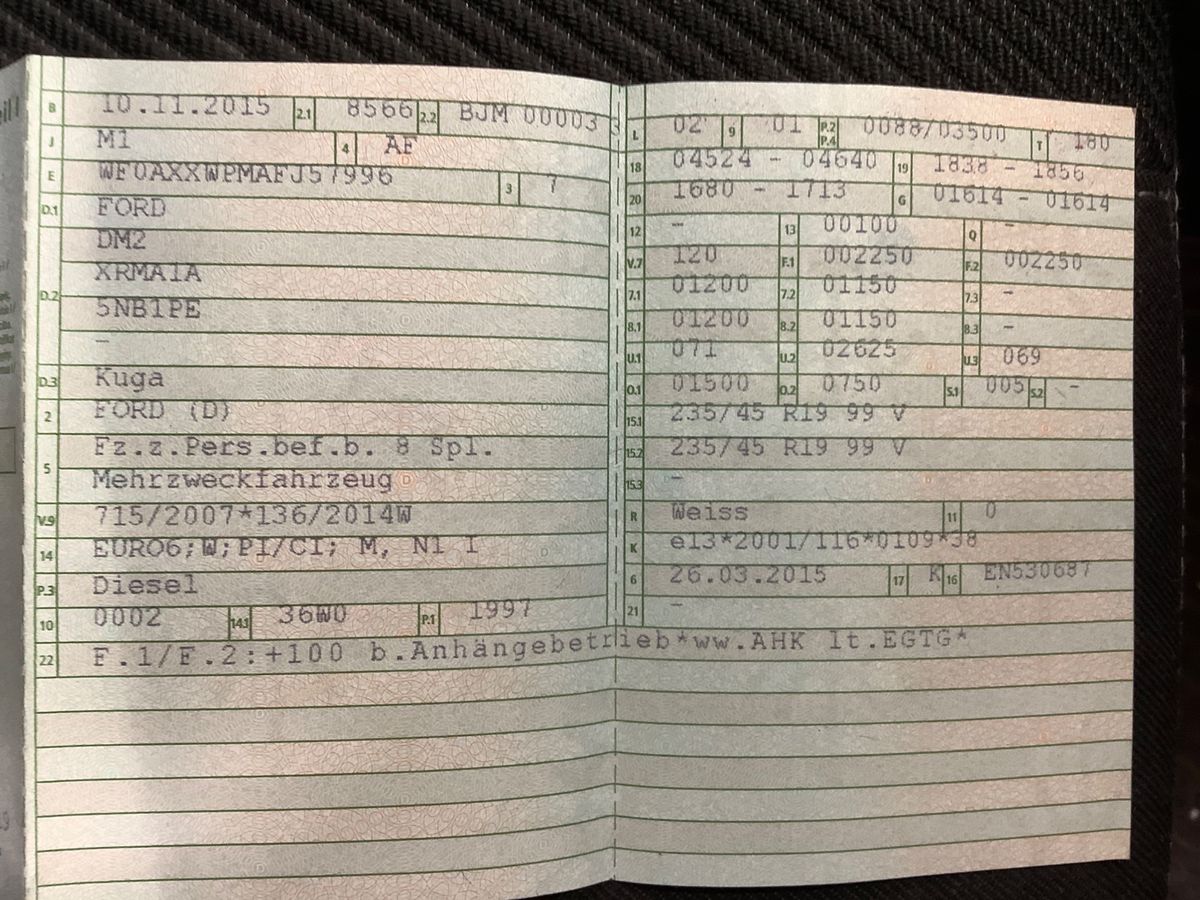 B 10.11.2015 2.1 8566 2.2 BJM 00003 3
J M1 4 AF
E WF0AXXWPMAFJ57996 3 7
D.1 FORD
DM2
XRMA1A
D.2 5NB1PE
-
D.3 Kuga
2 FORD (D)
Fz.z.Pers.bef.b. 8 Spl.
5 Mehrzweckfahrzeug
V.9 715/2007*136/2014W
14 EURO6;W;PI/CI; M, N1 I
P.3 Diesel
10 0002 14.1 36W0 P.1 1997
22 F.1/F.2:+100 b.Anhängebetrieb*ww.AHK lt.EGTG*
L 02 9 01 P.2 P.4 0088/03500 T 180
18 04524 - 04640 19 1838 - 1856
20 1680 - 1713 G 01614 - 01614
12 - 13 00100 Q -
V.7 120 F.1 002250 F.2 002250
7.1 01200 7.2 01150 7.3 -
8.1 01200 8.2 01150 8.3 -
U.1 071 U.2 02625 U.3 069
O.1 01500 O.2 0750 S.1 005 S.2 -
15.1 235/45 R19 99 V
15.2 235/45 R19 99 V
15.3 -
R Weiss 11 0
K e13*2001/116*0109*38
6 26.03.2015 17 K 16 EN530687
21 -